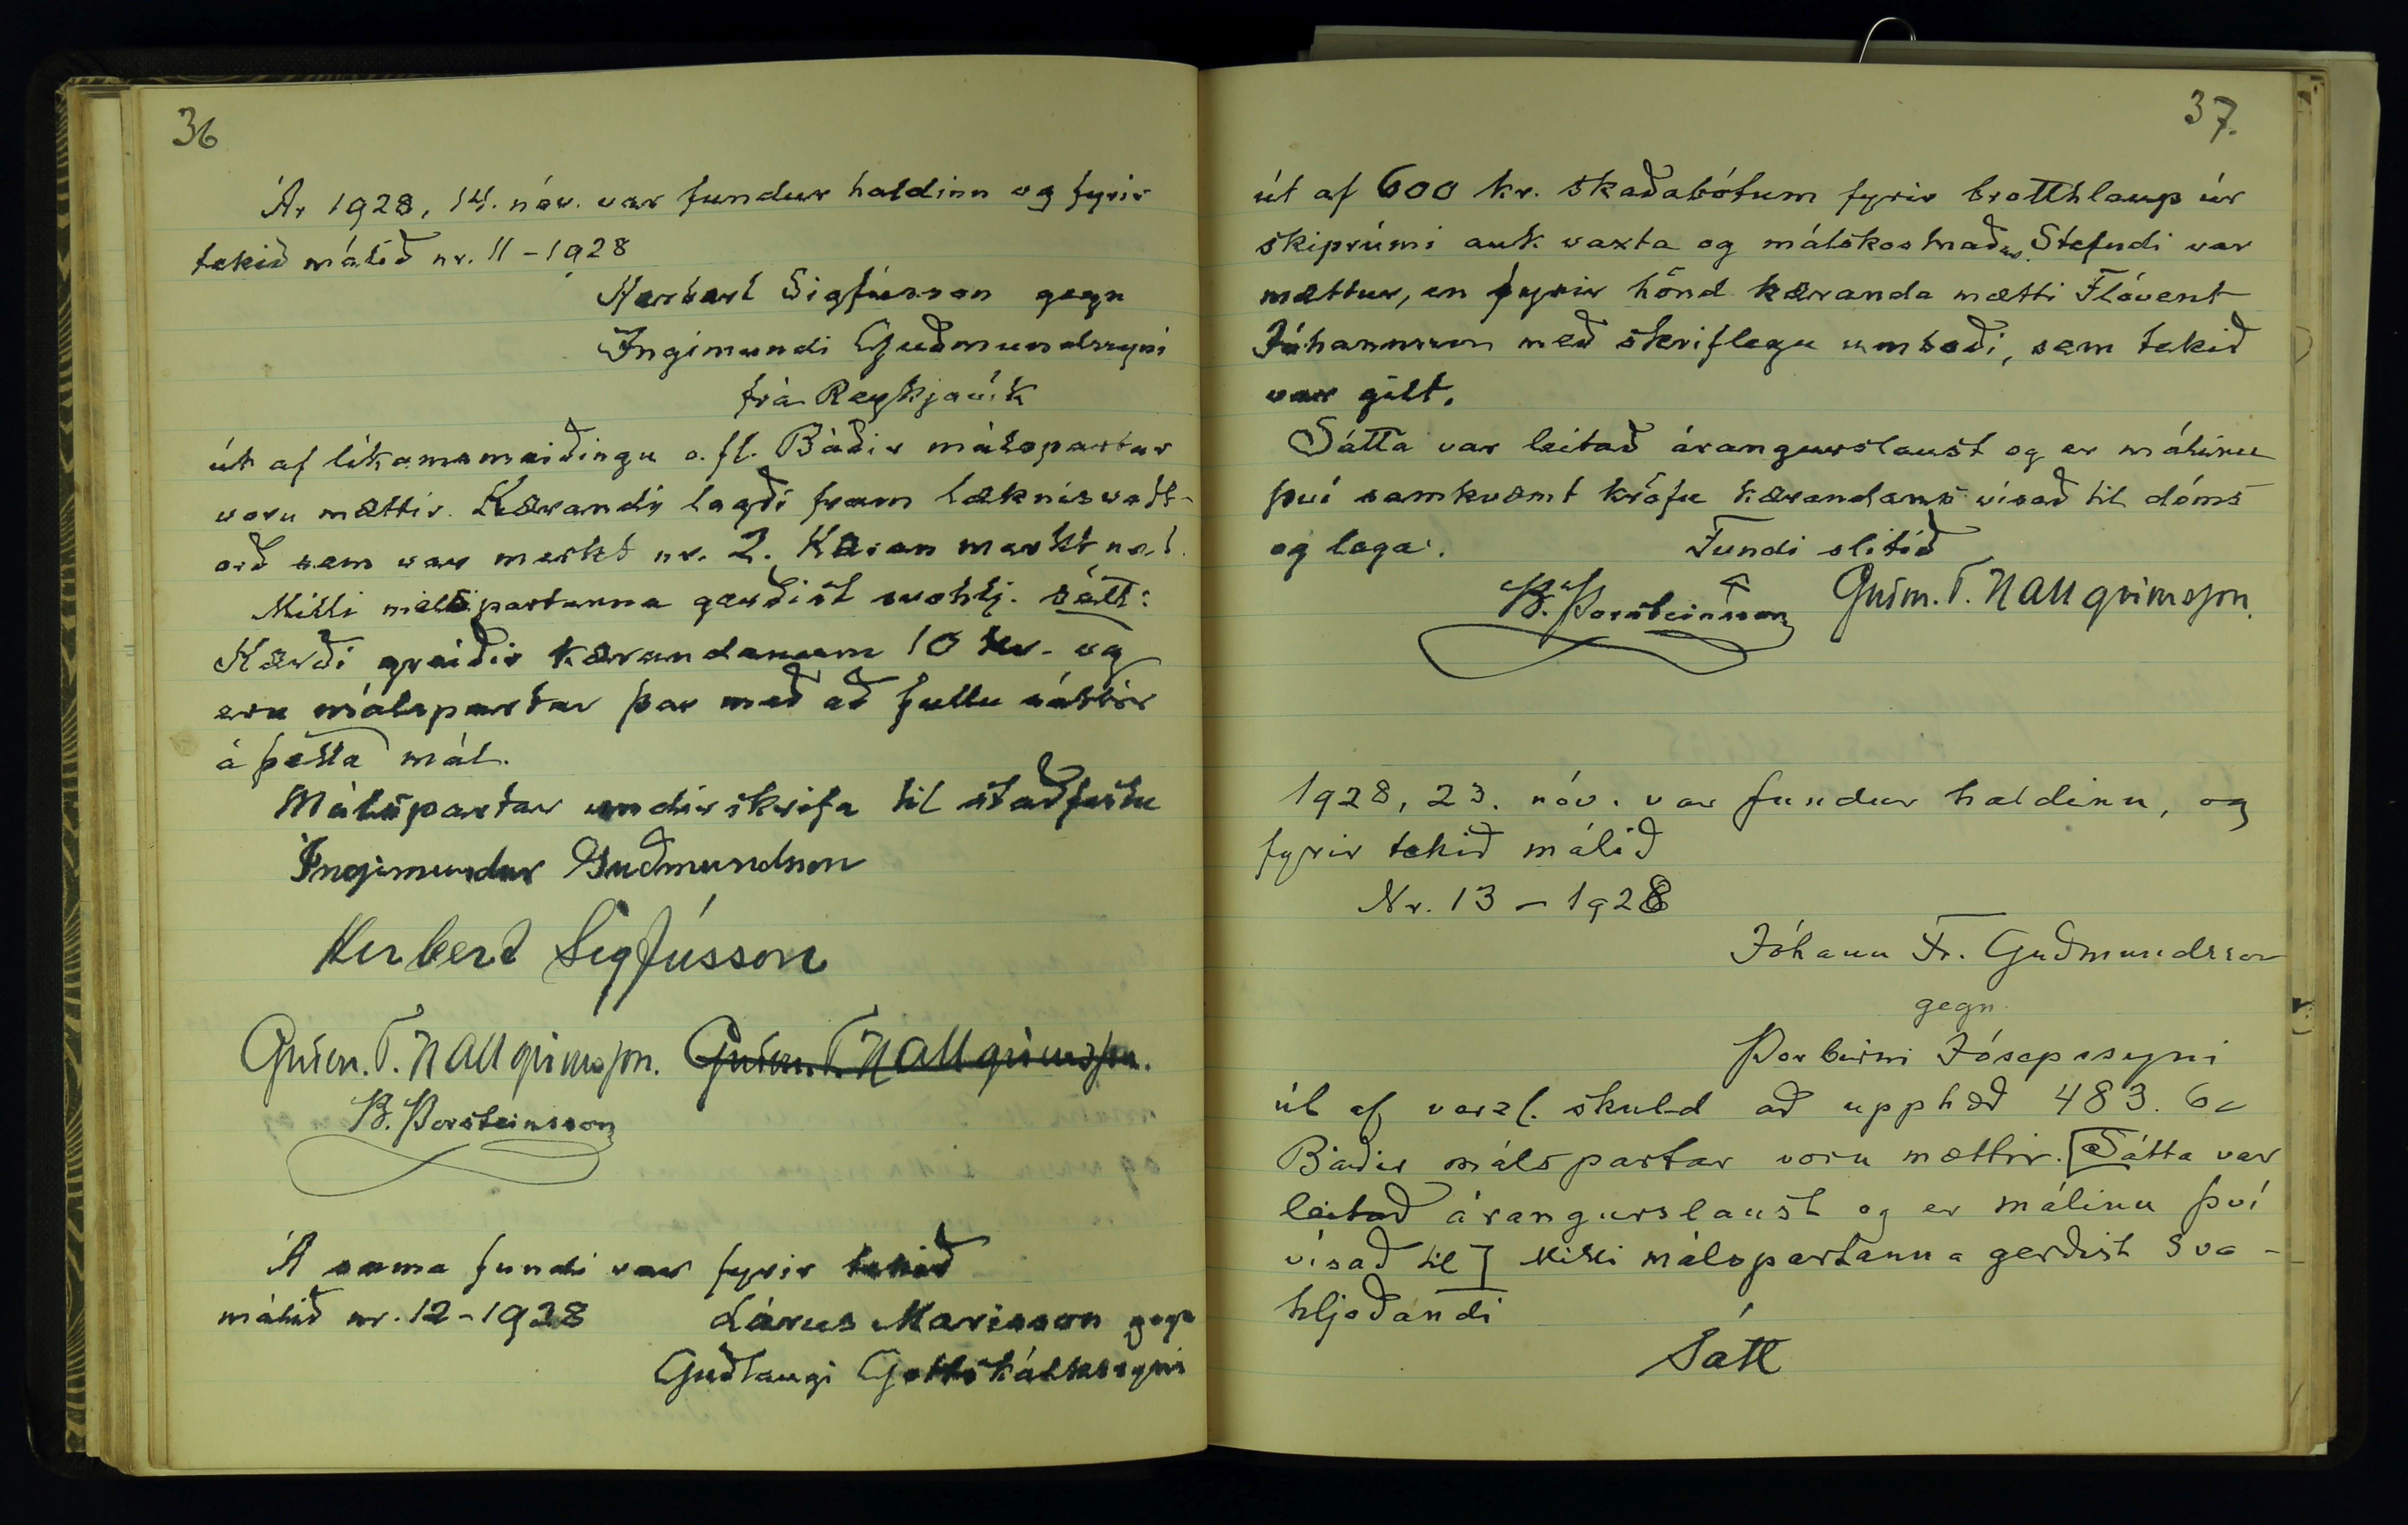 36
Ár 1928, 14. nóv. var fundur haldinn og fyrir
tekið málið nr. 11 - 1928
Herbert Sigfússon gegn
Ingimundi Guðmundssyni
frá Reykjavík
út af líkamsmeiðingu o. fl. Báðir málspartar
voru mættir. Kærandi lagði fram læknisvott-
orð sem var merkt nr. 2. Kæran merkt nr. 1.
Milli málspartanna gerðist svohlj. sátt:
Kærði greiðir kærandanum 10 kr. og
eru málspartar þar með að fullu sáttir
á þetta mál.
Málspartar undirskrifa til staðfestu
Ingimundur Guðmundsson
Herbert Sigfússon
Guðm. T. Hallgrímsson. Guðm. T. Hallgrímsson.
B. Þorsteinsson
Á sama fundi var fyrir tekið
málið nr. 12 - 1928 Lárus Marisson gegn
Guðlaugi Gottskálkssyni
37.
út af 600 kr. skaðabótum fyrir brotthlaup úr
skiprúmi auk vaxta og málskostnaðar. Stefndi var
mættur, en fyrir hönd kæranda mætti Flóvent
Jóhannsson með skriflegu umboði, sem tekið
var gilt.
Sátta var leitað árangurslaust og er málinu
því samkvæmt kröfu kærandans vísað til dóms
og laga. Fundi slitið
B. Þorsteinsson Guðm. T. Hallgrímsson.
1928, 23. nóv. var fundur haldinn, og
fyrir tekið málið
Nr. 13 - 1928
Jóhann Fr. Guðmundsson
gegn
Þorbirni Jósepssyni
út af verzl. skuld að upphæð 483.60
Báðir málspartar voru mættir. [Sátta var
leitað árangurslaust og er málinu því
vísað til] Milli málspartanna gerðist sva-
hljoðandi
Sátt